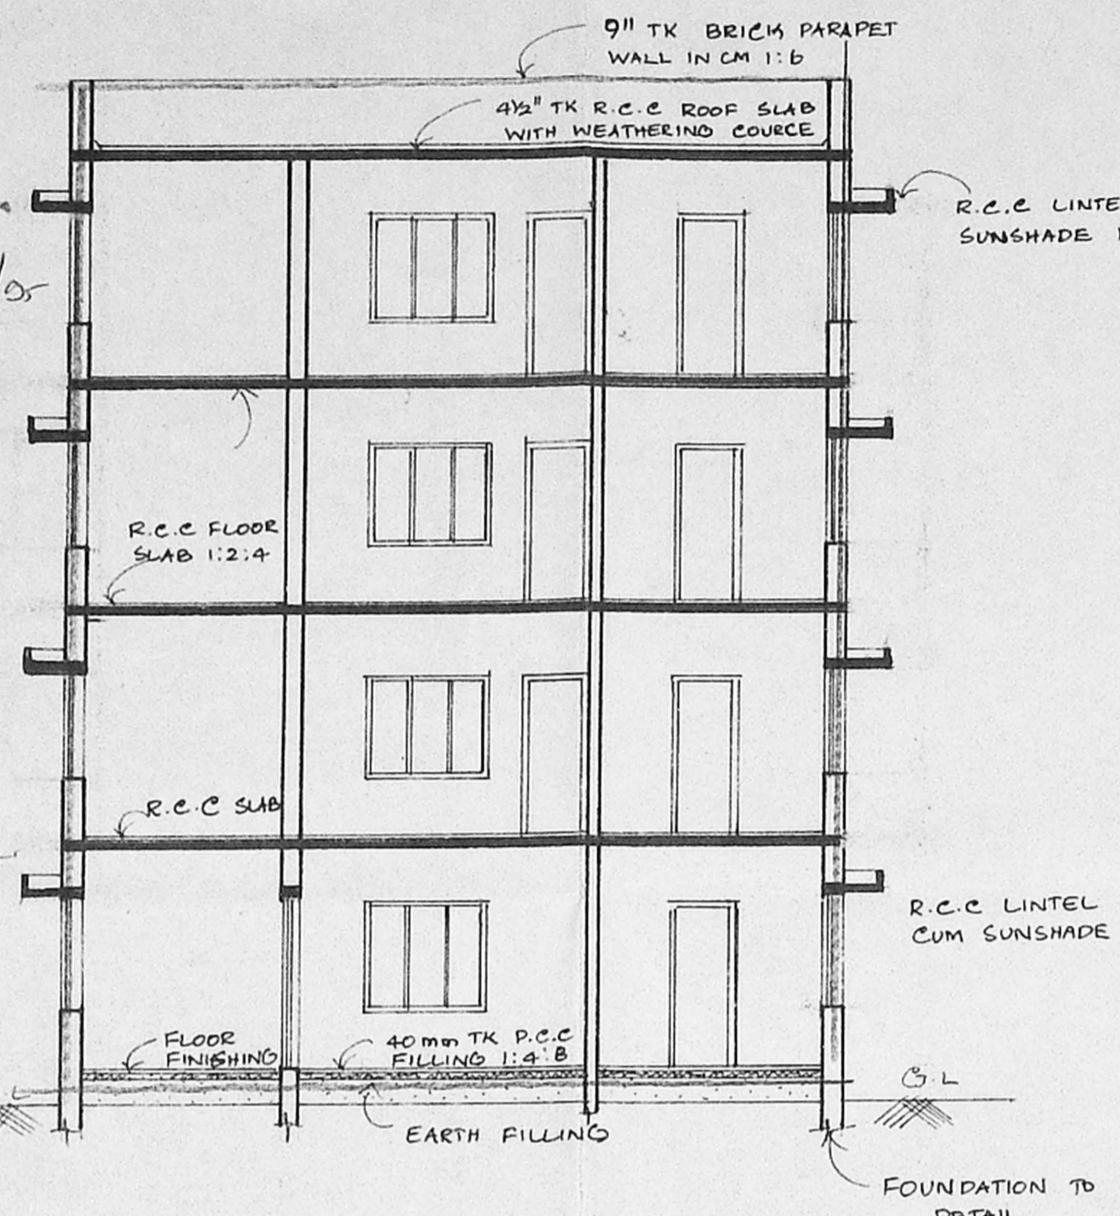 9" TK BRICK PARAPET
WALL IN CM 1:6
4½" TK R.C.C ROOF SLAB
WITH WEATHERING COURCE
R.C.C LINTE
SUNSHADE
R.C.C FLOOR
SLAB 1:2:4
R.C.C SLAB
R.C.C LINTEL
CUM SUNSHADE
FLOOR
FINISHING
40mm TK P.C.C
FILLING 1:4:8
G.L
EARTH FILLING
FOUNDATION TO
DETAIL